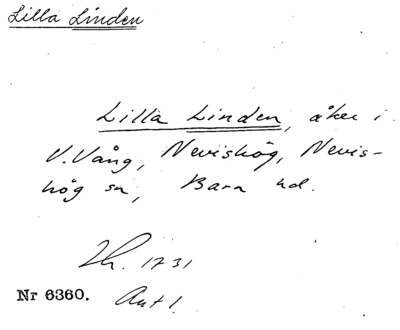 Lilla Linden
Lilla Linden, åker i
V. Vång, Nevishög, Nevis-
hög sn, Bara hd.
Lh. 1731
Nr 6360. Akt 1.